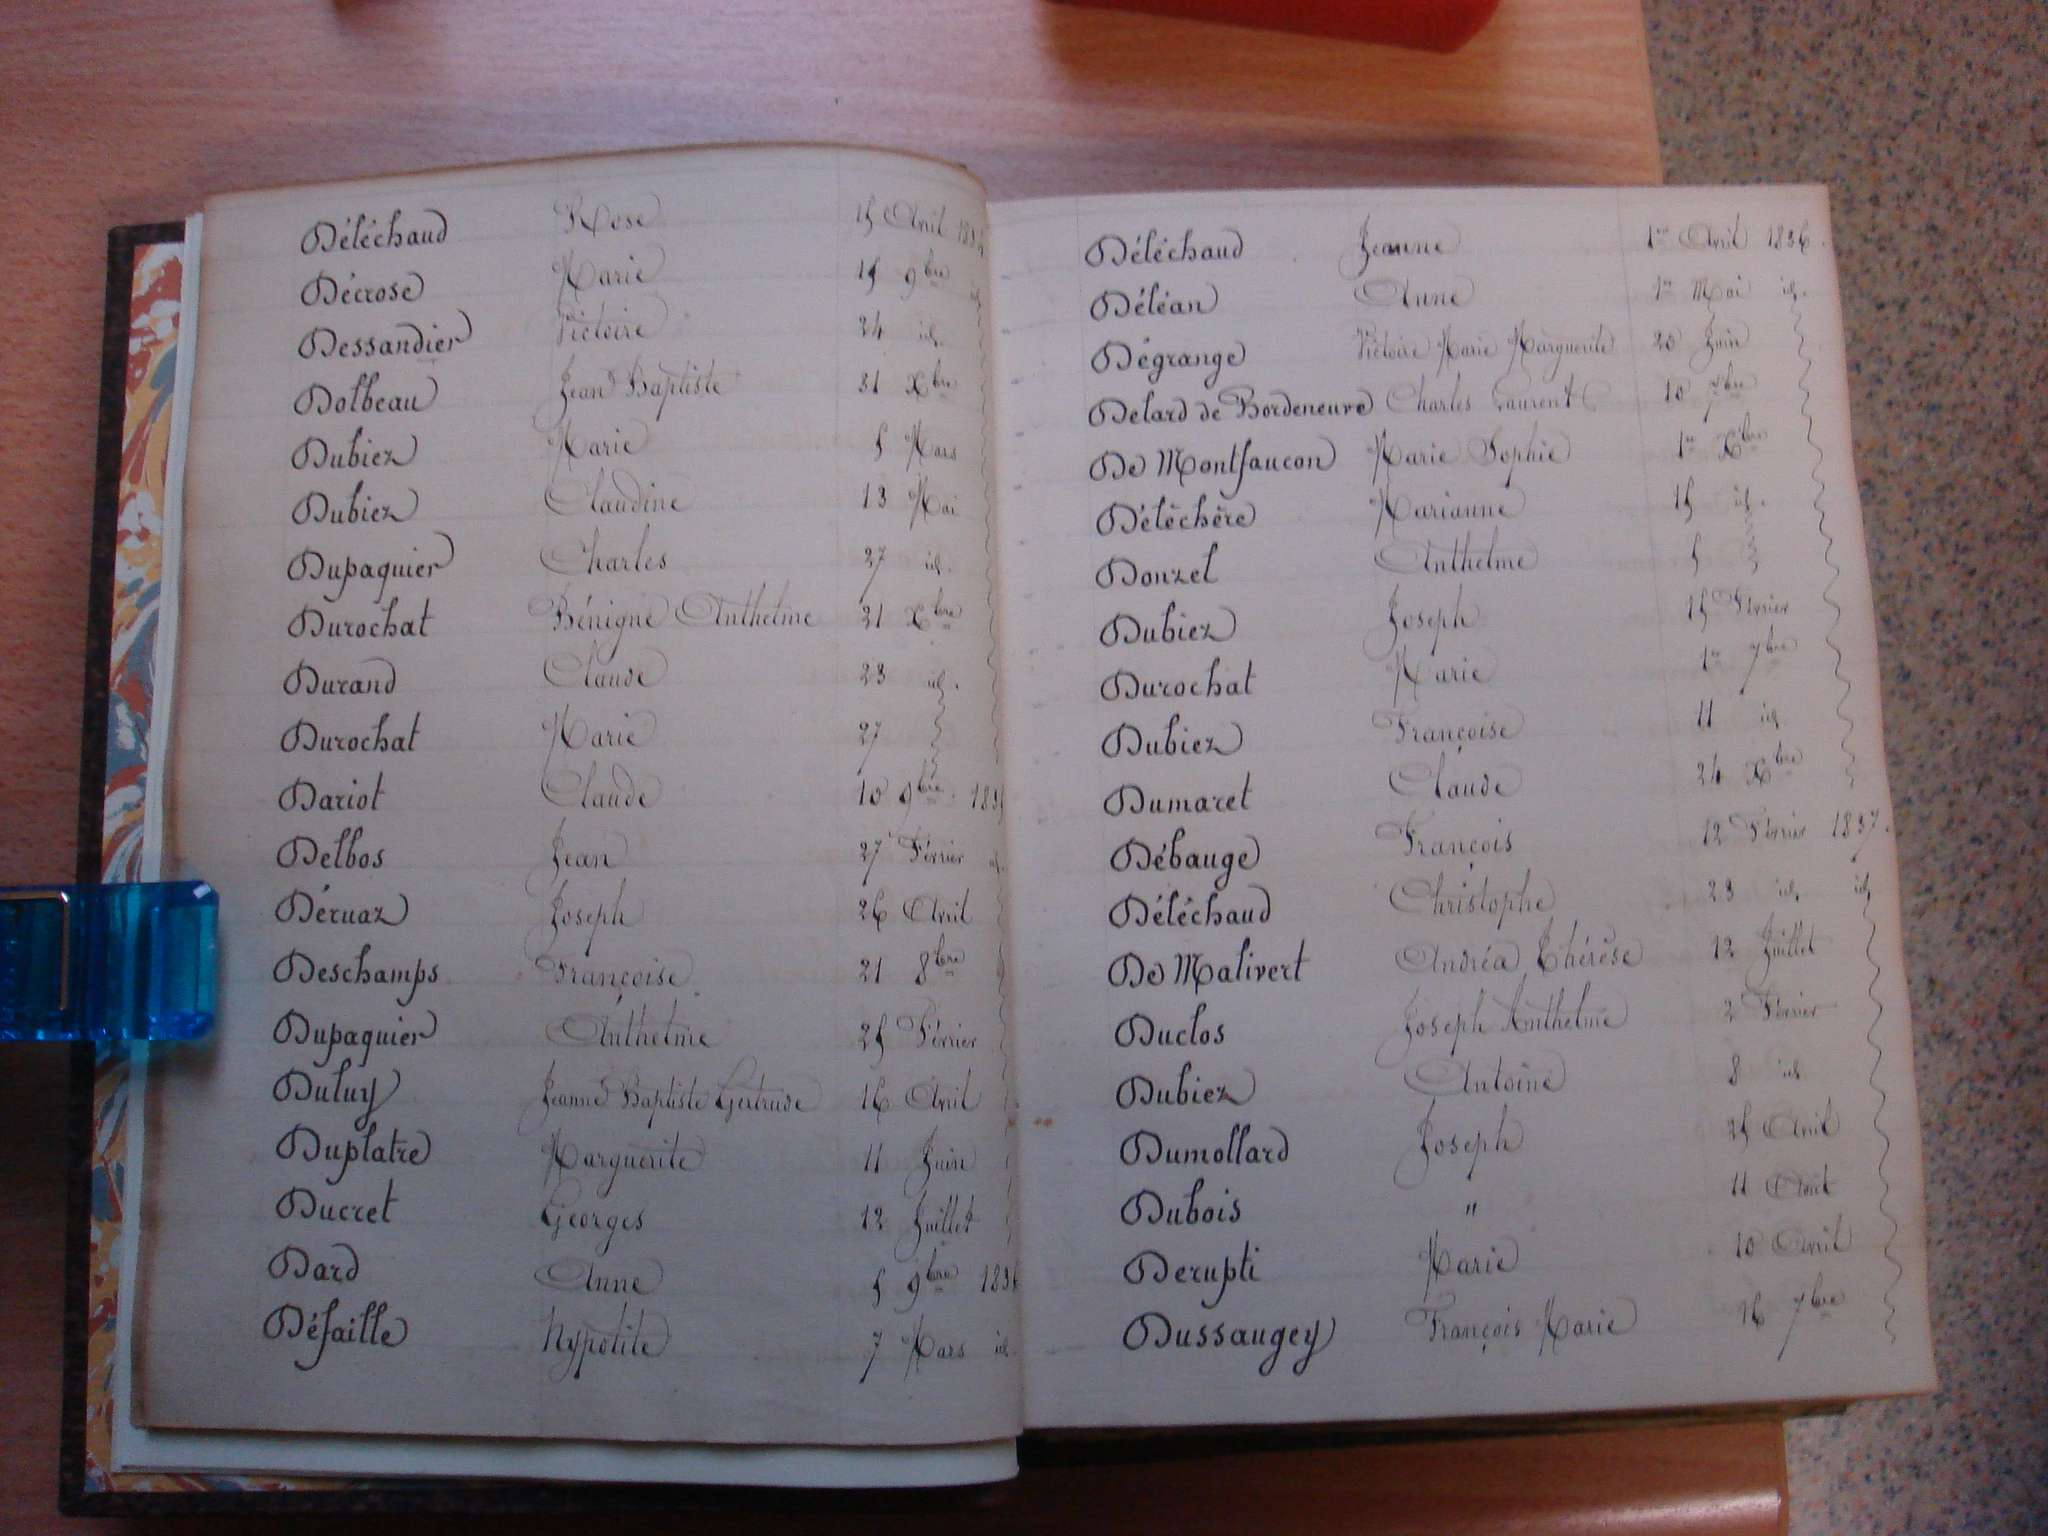 Déléchaud Rose 15 Avril
Décrose Marie 15 9bre id.
Dessandier Victoire 24 id.
Dolbeau Jean Baptiste 31 Xbre
Dubiez Marie 5 Mars
Dubiez Claudine 13 Mai
Dupaquier Charles 27 id.
Durochat Bénigne Anthelme 21 Xbre
Durand Claude 23 id.
Durochat Marie 27
Dariot Claude 10 9bre
Delbos Jean 27 Février id.
Déruaz Joseph 26 Avril
Deschamps Françoise 21 8bre
Dupaquier Anthelme 25 Février
Duluy Jeanne Baptiste Gertrude 16 Avril
Duplatre Marguerite 11 Juin
Ducret Georges 12 Juillet
Dard Anne 5 9bre 1836
Défaille Hypolite 7 Mars id.
Déléchaud Jeanne 1er Avril 1836.
Déléan Anne 1er Mai id.
Dégrange Victoire Marie Marguerite 20 Juin
Delard de Bordeneuve Charles Laurent 10 7bre
De Montfaucon Marie Sophie 1er Xbre
Déléchère Marianne 15 id.
Donzel Anthelme 5
Dubiez Joseph 15 Février
Durochat Marie 1er 7bre
Dubiez Françoise 11 id
Dumaret Claude 24 Xbre
Débauge François 12 Février 1837.
Déléchaud Christophe 23 id. id
De Malivert Andréa Thérèse 12 Juillet
Duclos Joseph Anthelme 2 Février
Dubiez Antoine 8 id
Dumollard Joseph 25 Avril
Dubois " 11 Août
Derupti Marie 10 Avril
Dussaugey François Marie 16 7bre